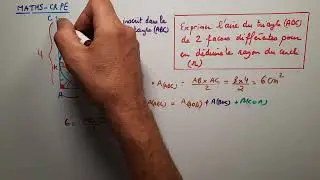 MATHS - CAPÉ
C
inscrit dans le
triangle (ABC)
4
A
Exprimer l'aire du triangle (ABC)
de 2 façons différentes pour
en déduire le rayon du cercle
(r)
A(ABC) = AB x AC / 2 = 3 x 4 / 2 = 6 cm²
A(ABC) = A(AOB) + A(BOC) + A(COA)
6 =